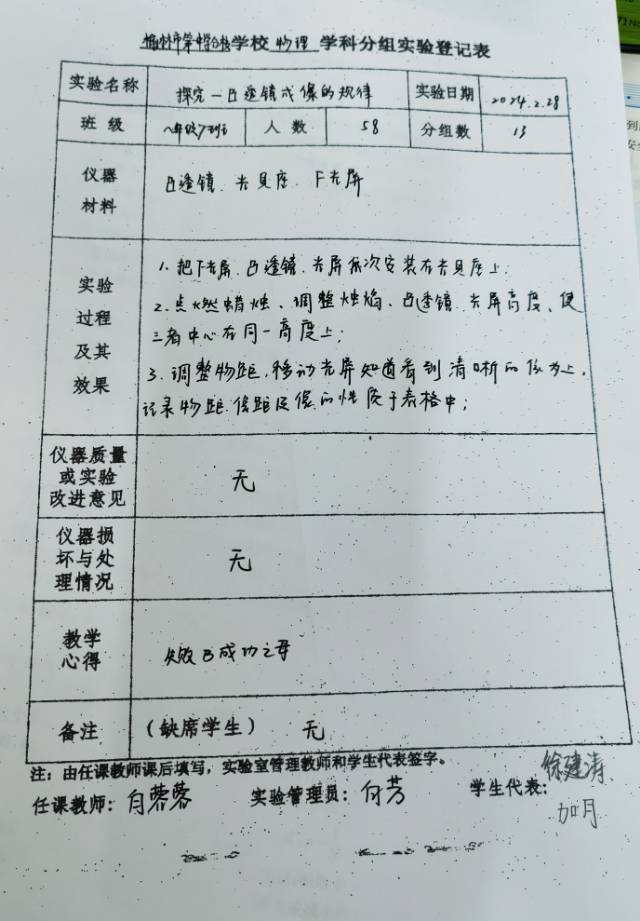 学校 物理 学科分组实验登记表
实验名称 探究一凸透镜成像的规律 实验日期 2024.2.28
班级 八年级7班 人数 58 分组数 13
仪器材料 凸透镜、光具座、F光屏
实验
过程
及其
效果
1、把F光屏、凸透镜、光屏依次安装在光具座上；
2、点燃蜡烛、调整烛焰、凸透镜、光屏高度、使
三者中心在同一高度上；
3、调整物距，移动光屏知道看到清晰的像为上，
记录物距、像距及像的性质于表格中；
仪器质量
或实验
改进意见
无
仪器损
坏与处
理情况
无
教学
心得
失败乃成功之母
备注 （缺席学生） 无
注：由任课教师课后填写，实验室管理教师和学生代表签字。
任课教师：蓉蓉 实验管理员：何芳 学生代表：徐建涛
加月